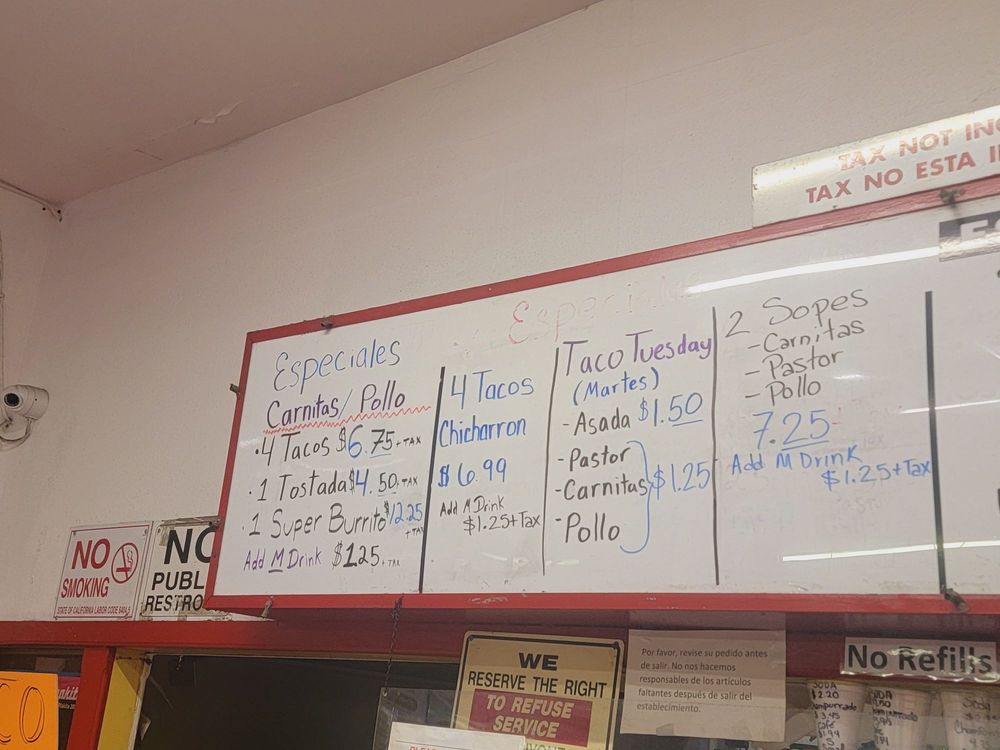 TAX NOT INC
TAX NO ESTA I
Especiales
Especiales
Carnitas/Pollo
·4 Tacos $6.75+TAX
·1 Tostada $4.50+TAX
·1 Super Burrito $12.25
+TAX
Add M Drink $1.25+TAX
4 Tacos
Chicharron
$6.99
Add M Drink
$1.25+Tax
Taco Tuesday
(Martes)
-Asada $1.50
-Pastor
-Carnitas $1.25
-Pollo
2 Sopes
-Carnitas
-Pastor
-Pollo
7.25
Add M Drink
$1.25+Tax
NO
SMOKING
STATE OF CALIFORNIA LABOR CODE
NO
PUBL
RESTRO
WE
RESERVE THE RIGHT
TO REFUSE
SERVICE
Por favor, revise su pedido antes
de salir. No nos hacemos
responsables de los artículos
faltantes después de salir del
establecimiento.
No Refills
SODA
$2.20
$3.45
Café
$1.99